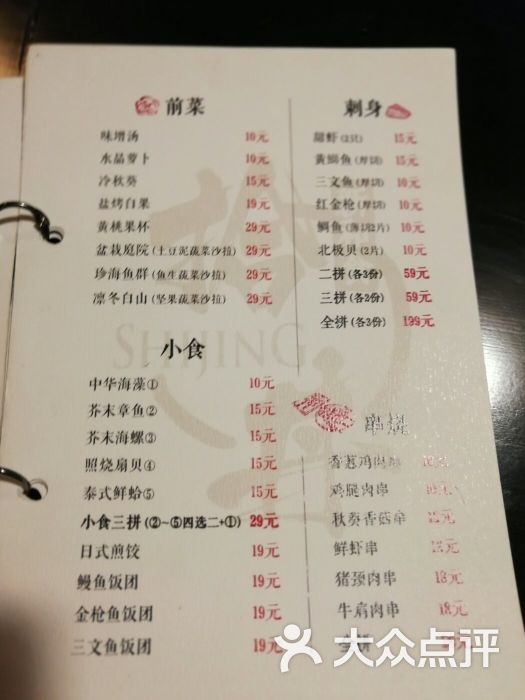 前菜
味增汤 10元
水晶萝卜 10元
冷秋葵 15元
盐烤白果 19元
黄桃果杯 29元
盆栽庭院(土豆泥蔬菜沙拉) 29元
珍海鱼群(鱼生蔬菜沙拉) 29元
凛冬白山(坚果蔬菜沙拉) 29元
小食
中华海藻① 10元
芥末章鱼② 15元
芥末海螺③ 15元
照烧扇贝④ 15元
泰式鲜蛤⑤ 15元
小食三拼(②~⑤四选二+①) 29元
日式煎饺 19元
鳗鱼饭团 19元
金枪鱼饭团 19元
三文鱼饭团 19元
刺身
甜虾(2只) 15元
黄鰤鱼(厚切) 15元
三文鱼(厚切) 10元
红金枪(厚切) 10元
鲷鱼(薄切2片) 10元
北极贝(2片) 10元
二拼(各3份) 59元
三拼(各2份) 59元
全拼(各3份) 199元
串烧
香葱鸡肉串
鸡腿肉串
秋葵香菇串
鲜虾串
猪颈肉串 13元
牛肩肉串 18元
SHIJING
大众点评